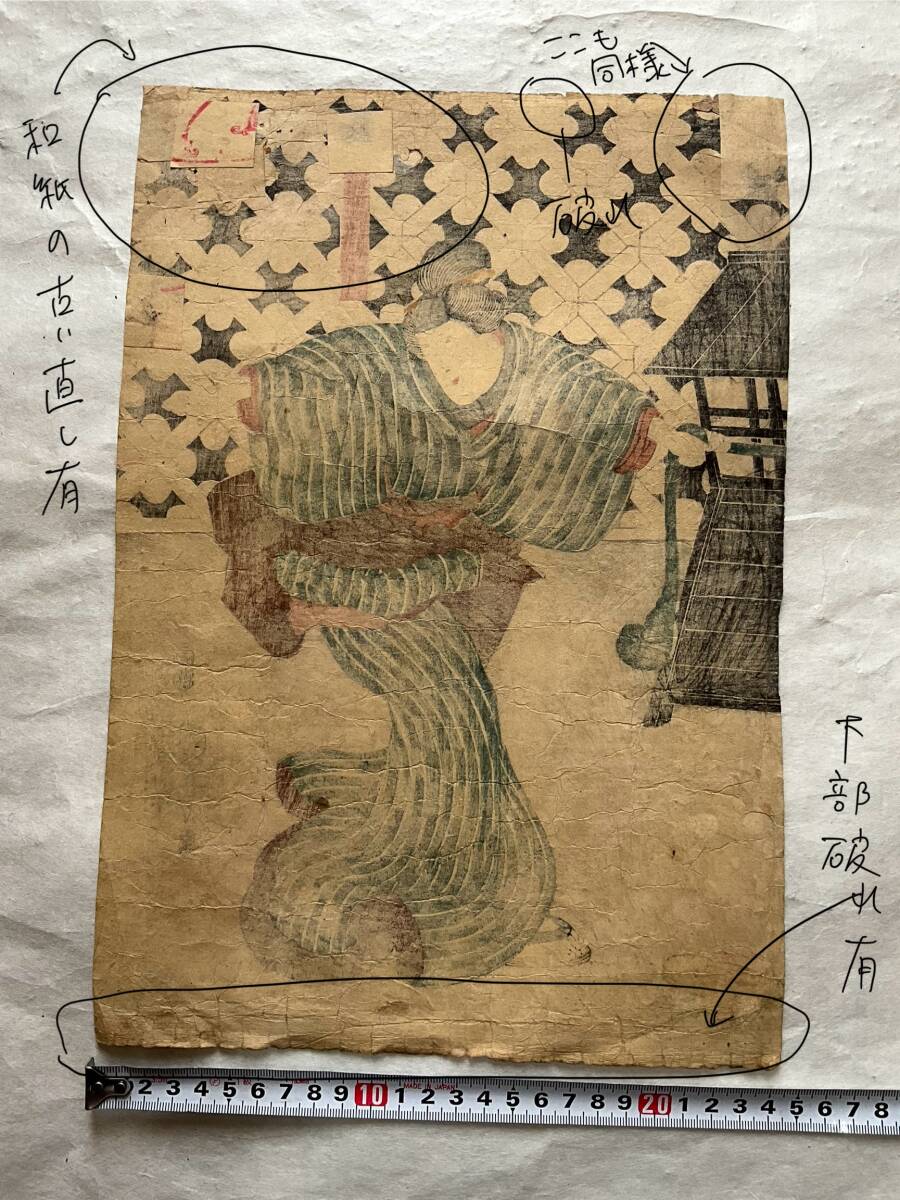 和紙の古い直し有
ここも
同様
破れ
下部破れ有
2 3 4 5 6 7 8 9 10 1 2 3 4 5 6 7 8 9 20 1 2 3 4 5 6 7 8
MADE IN JAPAN